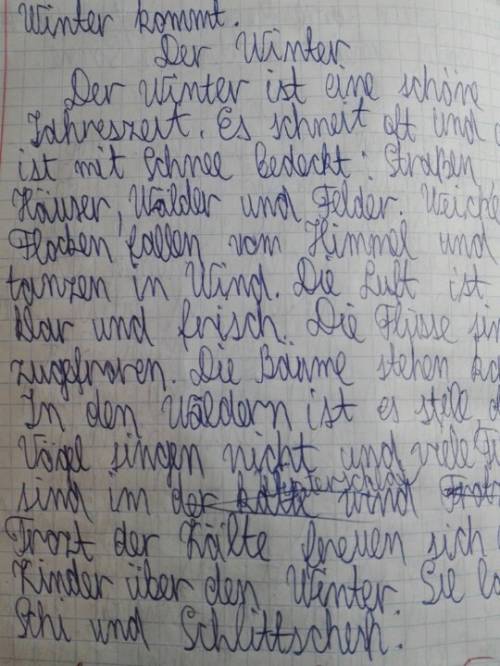 Winter kommt.
Der Winter
Der Winter ist eine schöne
Jahreszeit. Es schneit oft und
ist mit Schnee bedeckt: Straßen
Häuser, Wälder und Felder. Weiche
Flocken fallen vom Himmel und
tanzen in Wind. Die Luft ist
klar und frisch. Die Flüsse sin
zugefroren. Die Bäume stehen ka
In den Wäldern ist es stele
Vögel singen nicht und viele
sind im
Trozt der Kälte freuen sich
Kinder über den Winter. Sie la
Schi und Schlittscheh.